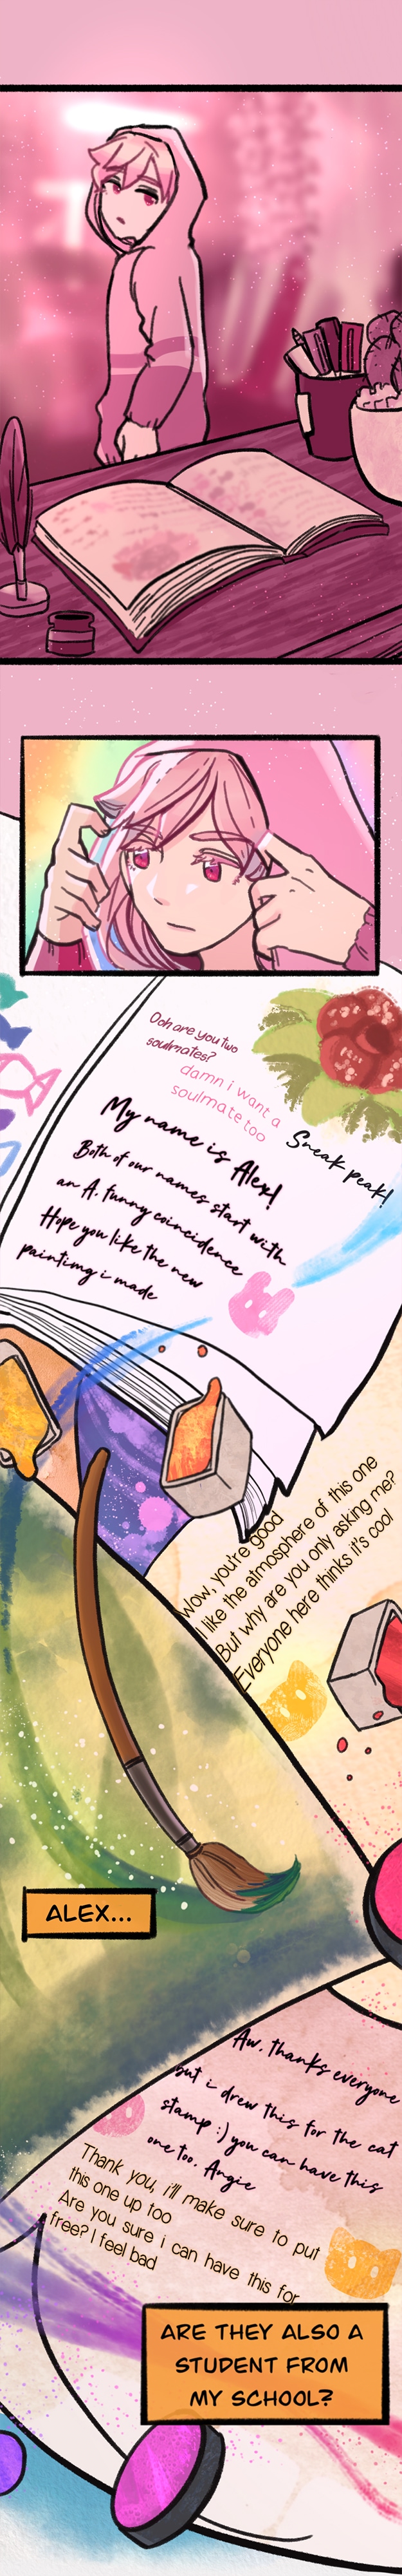 Ooh are you two
soulmates?
damn i want a
soulmate too
My name is Alex!
Both of our names start with
an A. funny coincidence
Hope you like the new
paintimg i made
Sneak peak!
Wow, you're good
I like the atmosphere of this one
But why are you only asking me?
Everyone here thinks it's cool
ALEX...
Aw, thanks everyone
but i drew this for the cat
stamp :) you can have this
one too, Angie
Thank you, i'll make sure to put
this one up too
Are you sure i can have this for
free? I feel bad
ARE THEY ALSO A
STUDENT FROM
MY SCHOOL?